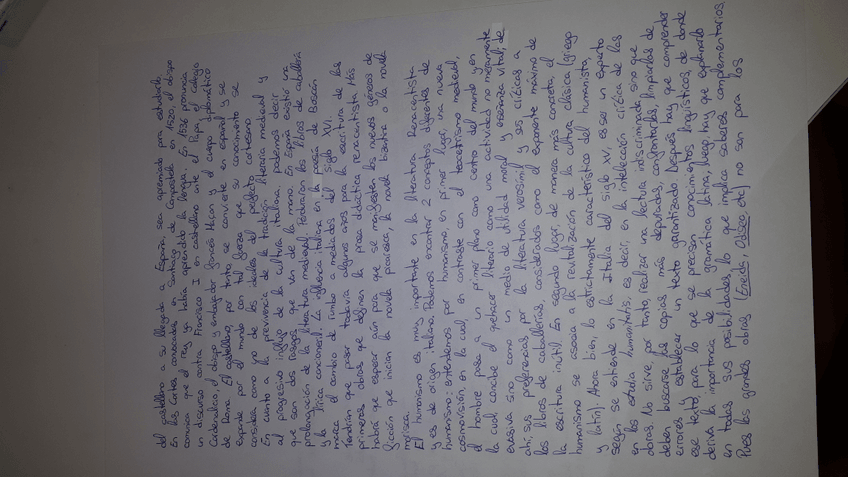 del castellano a su llegada a España, sea apremiado para estudiarlo.
En las Cortes convocadas en Santiago de Compostela en 1520, el obispo
comunica que el rey ya había aprendido la lengua. En 1536 pronuncia
un discurso contra Francisco I en castellano ante el Papa, el colegio
Cardenalicio, el obispo y embajador francés Maçon y el cuerpo diplomático
de Roma. El castellano, por tanto, se convierte en español y se
expande por el mundo con tal fuerza que su conocimiento se
considera como uno de los ideales del perfecto cortesano.
En cuanto a la pervivencia de la tradición literaria medieval y
al progresivo influjo de la cultura italiana, podemos decir
que son dos rasgos que van de la mano. En España existió una
prolongación de la literatura medieval. Perduraron los libros de caballería
y la lírica cancioneril. La influencia italiana en la poesía de Boscán
marca el cambio de rumbo a mediados del siglo XVI.
Tendrían que pasar todavía algunos años para la escritura de las
primeras obras que definen la prosa didáctica renacentista. Más
habrá que esperar aún para que se manifiesten los nuevos géneros de
ficción que inician la novela picaresca, la novela bizantina o la novela
morisca.
El humanismo es muy importante en la literatura Renacentista
y es de origen italiano. Podemos encontrar 2 conceptos diferentes de
humanismo: entendemos por humanismo, en primer lugar, una nueva
cosmovisión en la cual, en contraste con el teocentrismo medieval,
el hombre pasa a un primer plano como centro del mundo y en
la cual concibe el quehacer literario como una actividad no meramente
evasiva sino como un medio de utilidad moral y enseñanza vital; de
ahí, sus preferencias por la literatura verosímil y sus críticas a
los libros de caballerías, considerados como el exponente máximo de
la escritura inútil. En segundo lugar, de manera más concreta, el
humanismo se asocia a la revitalización de la cultura clásica (griego
y latín). Ahora bien, lo estrictamente característico del humanista,
según se entiende en la Italia del siglo XV, es ser un experto
en los studia humanitatis, es decir, en la intelección crítica de las
obras. No sirve, por tanto, realizar una lectura indiscriminada, sino que
deben buscarse las copias más depuradas, confrontarlas, limpiarlas de
errores y establecer un texto garantizado. Después, hay que comprender
ese texto, para lo que se precisan conocimientos lingüísticos, de donde
deriva la importancia de la gramática latina; luego, hay que explicarlo
en todas sus posibilidades, lo que implica saberes complementarios,
Pues las grandes obras (Eneida, Odisea, etc) no son para los